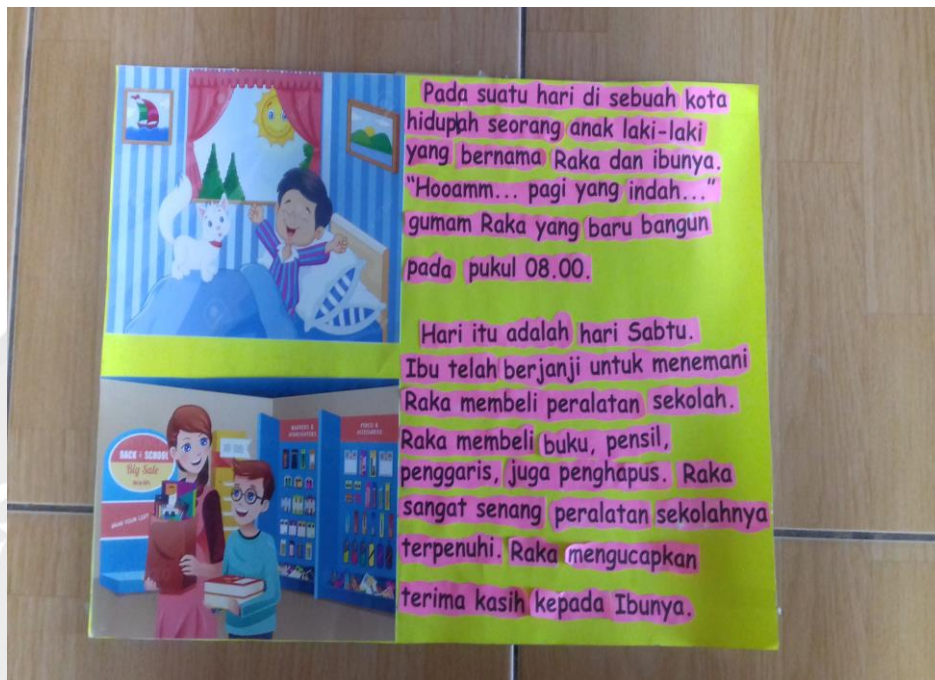 Pada suatu hari di sebuah kota
hiduplah seorang anak laki-laki
yang bernama Raka dan ibunya.
“Hooamm... pagi yang indah...”
gumam Raka yang baru bangun
pada pukul 08.00.
Hari itu adalah hari Sabtu.
Ibu telah berjanji untuk menemani
Raka membeli peralatan sekolah.
Raka membeli buku, pensil,
penggaris, juga penghapus. Raka
sangat senang peralatan sekolahnya
terpenuhi. Raka mengucapkan
terima kasih kepada Ibunya.
BACK + SCHOOL
Big Sale
MARKERS &
HIGHLIGHTERS
PENCILS &